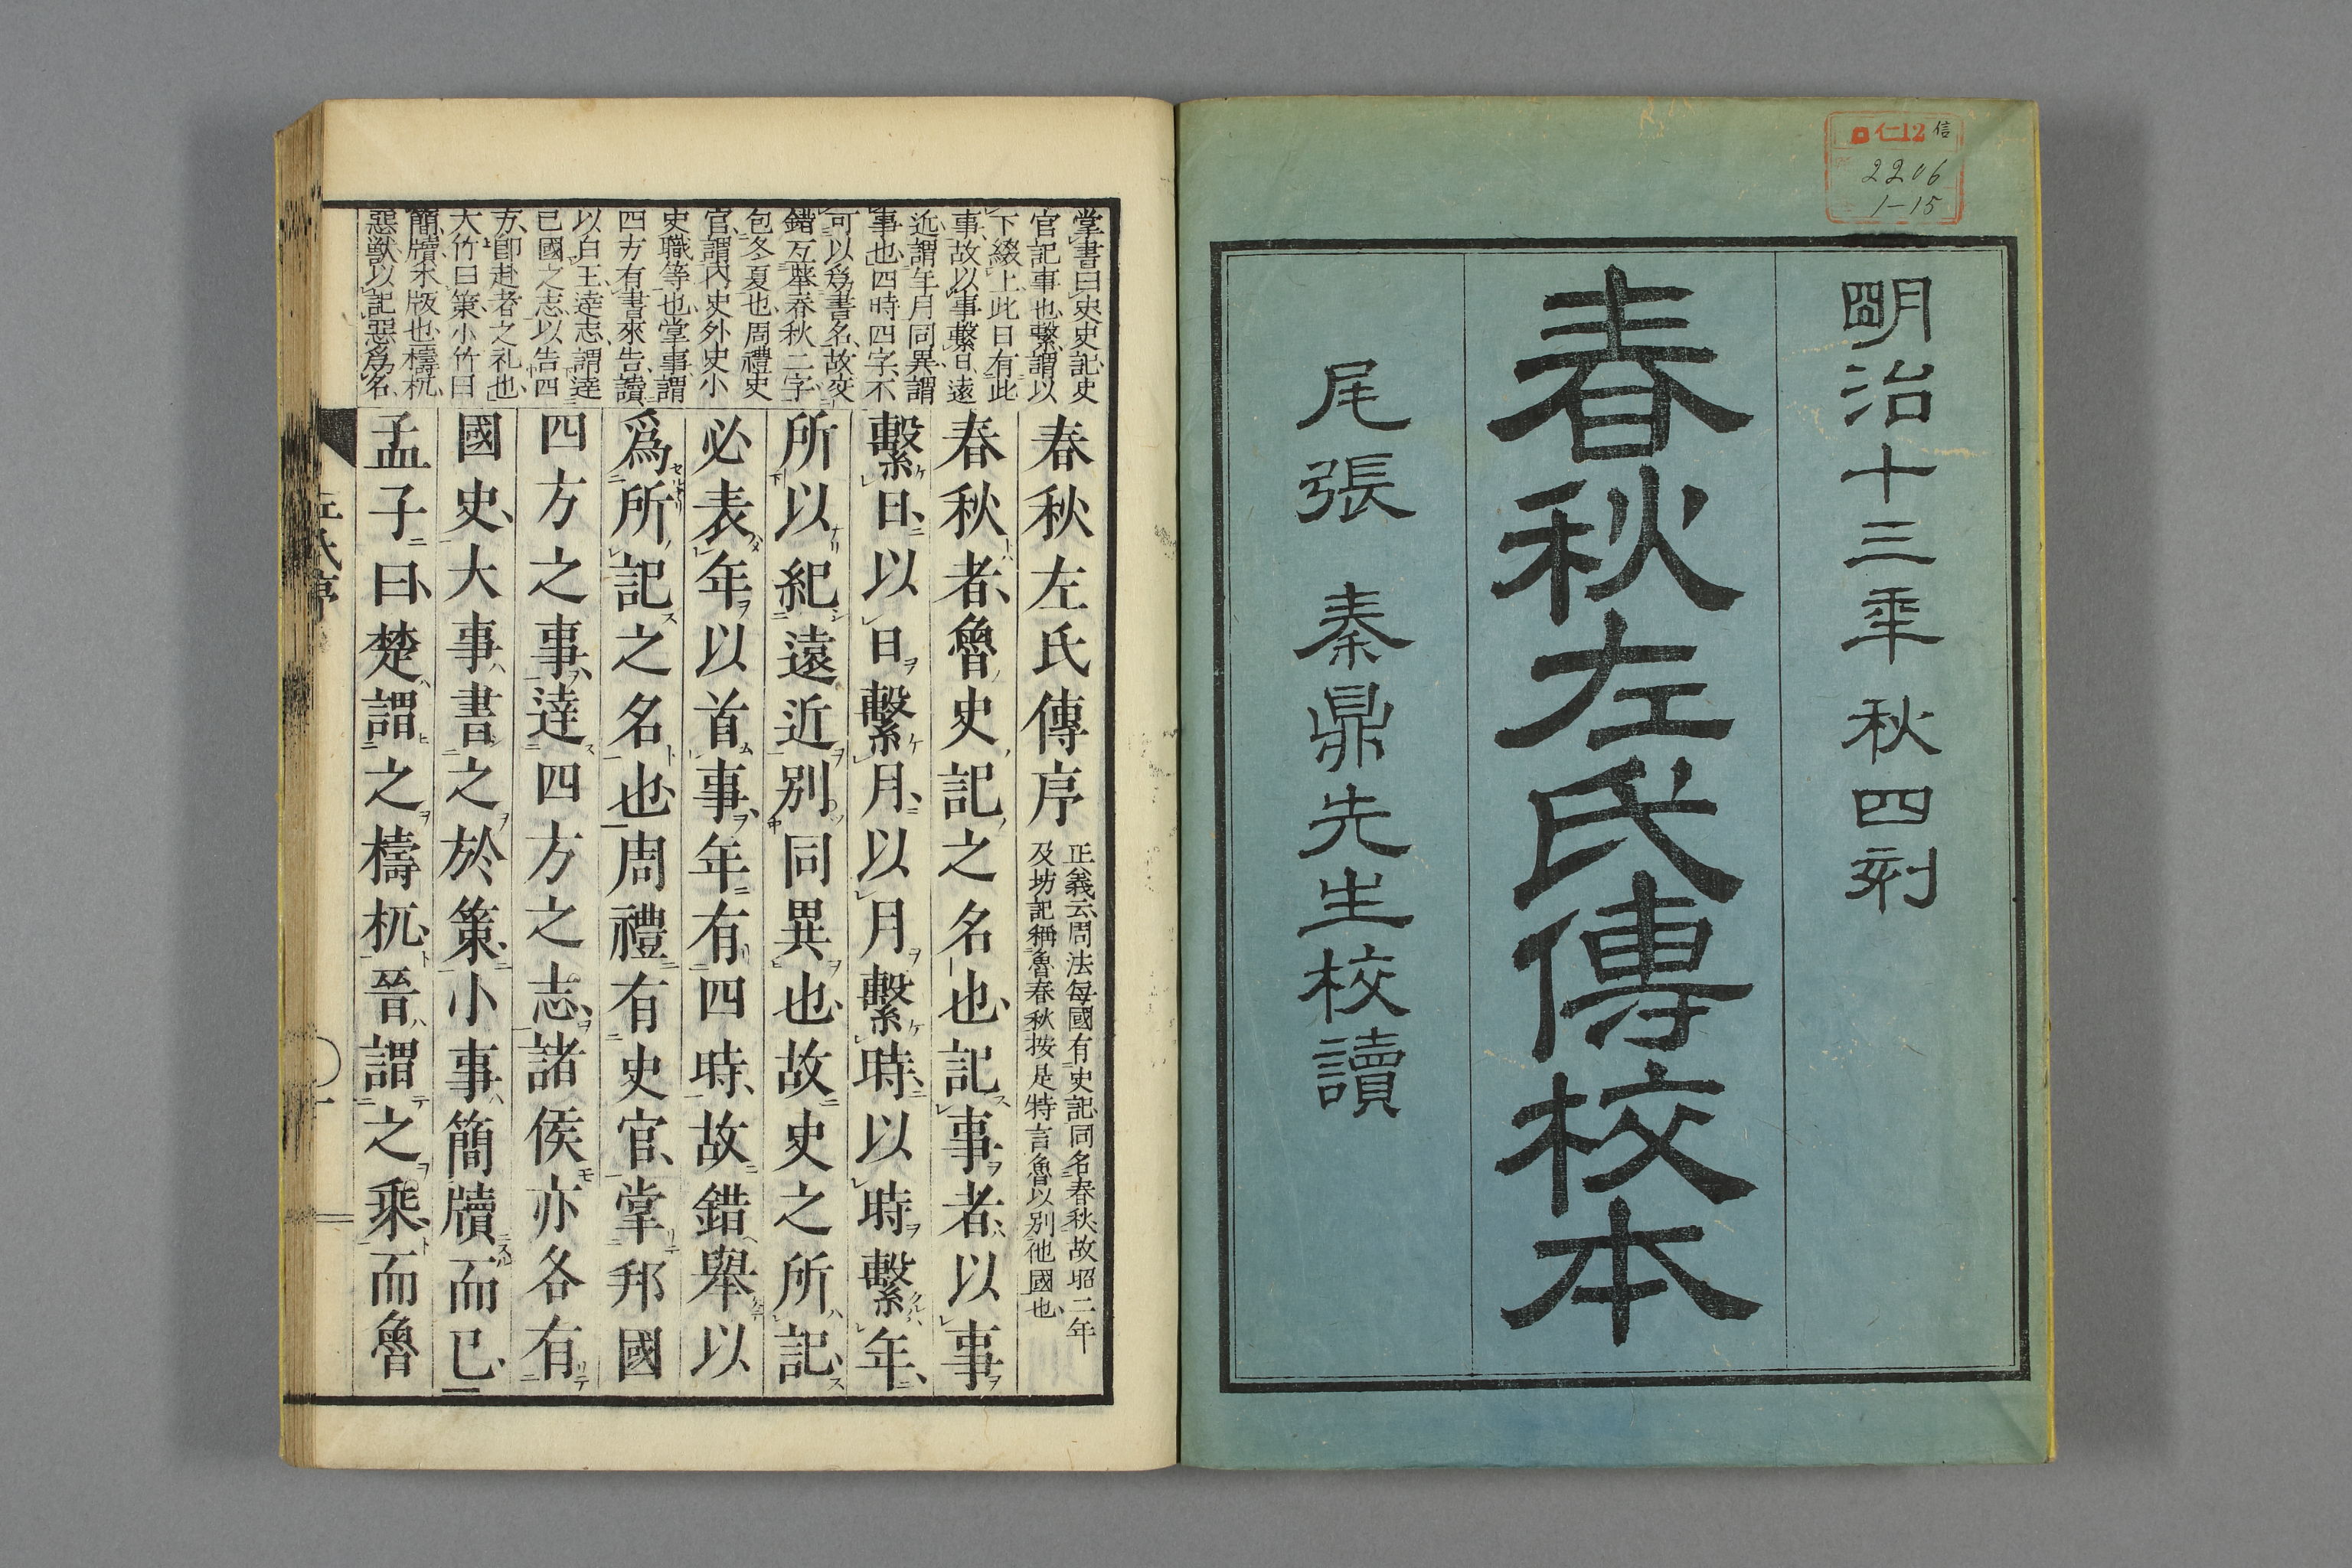 仁12 信
2206
1-15
明治十三年 秋四刻
春秋左氏傳校本
尾張 秦鼎先生校讀
掌書曰史史記史
官記事也繫謂以
下綴上此日有此
事故以事繫日遠
近謂年月同異謂
事也四時四字不
可以爲書名故交
錯互舉春秋二字
包冬夏也周禮史
官謂內史外史小
史職等也掌事謂
四方有書來告讀
以白王達志謂達
己國之志以告四
方卽赴者之礼也
大竹曰策小竹曰
簡牘木版也檮杌
惡獸以記惡爲名
春秋左氏傳序
正義云周法每國有史記同名春秋故昭二年
及坊記稱魯春秋按是特言魯以別他國也
春秋者魯史記之名也記事者以事
繫日以日繫月以月繫時以時繫年
所以紀遠近別同異也故史之所記
必表年以首事年有四時故錯舉以
爲所記之名也周禮有史官掌邦國
四方之事達四方之志諸侯亦各有
國史大事書之於策小事簡牘而已
孟子曰楚謂之檮杌晉謂之乘而魯
左氏序
一